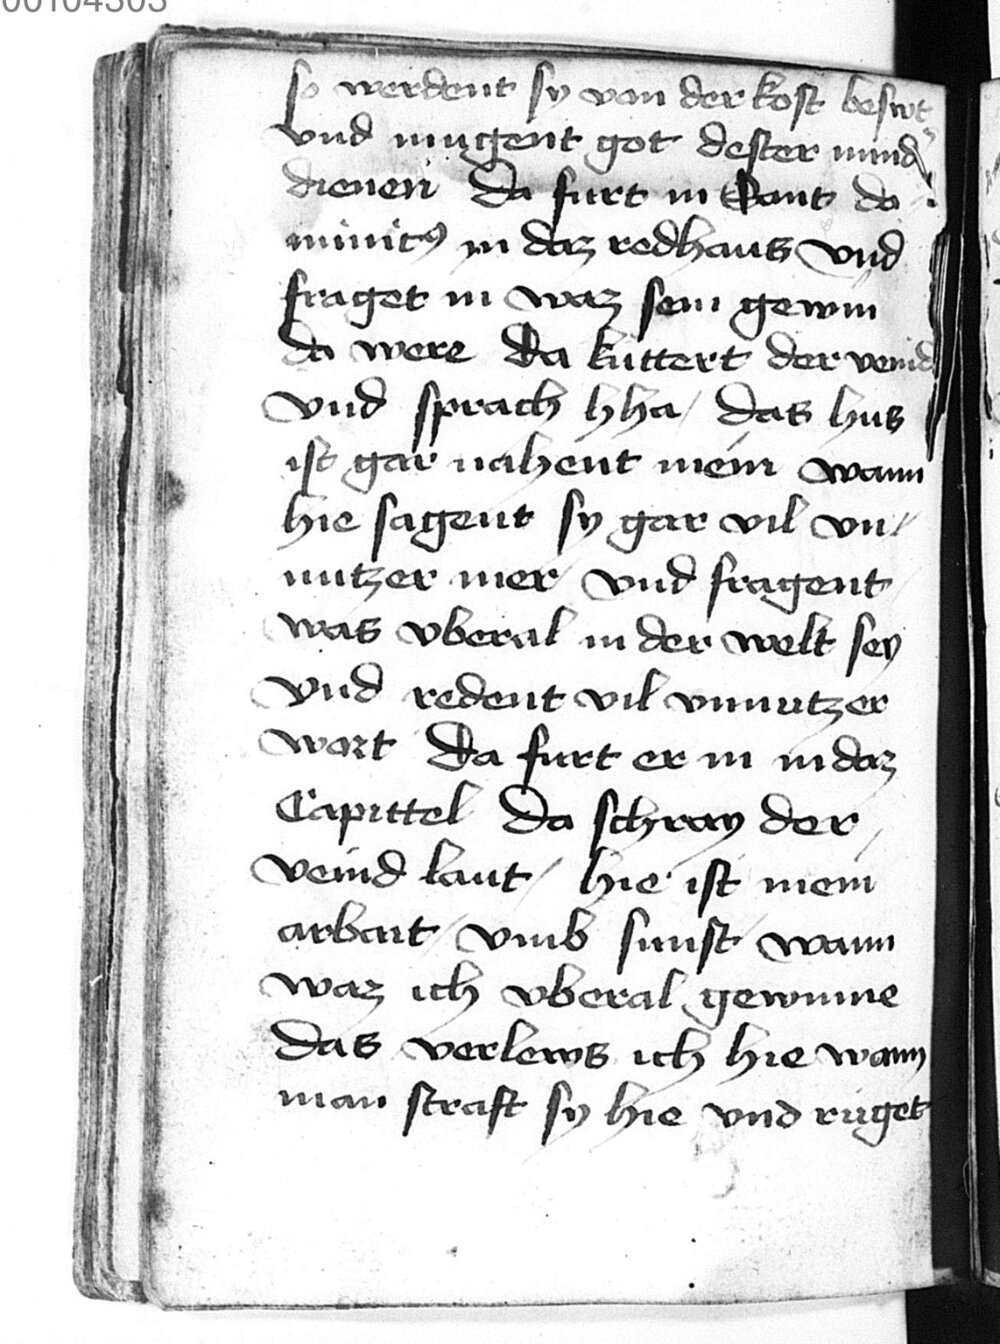 00104303
so werdent sy von der kost beswt
vnd mugent got dester mind
dienen Da furt in Sant do
minicꝰ in daz redhaus vnd
fraget in waz sein gewin
da were Da kuttert der veind
vnd sprach hha / das hus
ist gar nahent mein wann
hie sagent sy gar vil vn/
nutzer mer vnd fragent
was vberal in der welt sey
vnd redent vil vnnutzer
wort Da furt er in in daz
Capittel Da schray der
veind laut / hie ist mein
arbait vmb sunst wann
waz ich vberal gewinne
das verlews ich hie wann
man straft sy hie vnd ruget